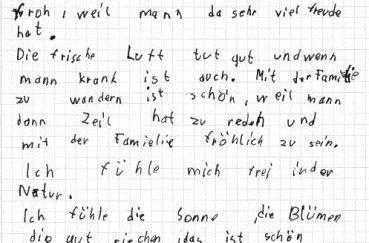 froh, weil mann da sehr viel freude
hat.
Die frische Luft tut gut undwenn
mann krank ist auch. Mit der Familie
zu wandern ist schön, weil mann
dann Zeil hat zu reden und
mit der Famielie fröhlich zu sein.
Ich fühle mich frei inder
Natur.
Ich fühle die Sonne, die Blümen
die gut riechen, das ist schön